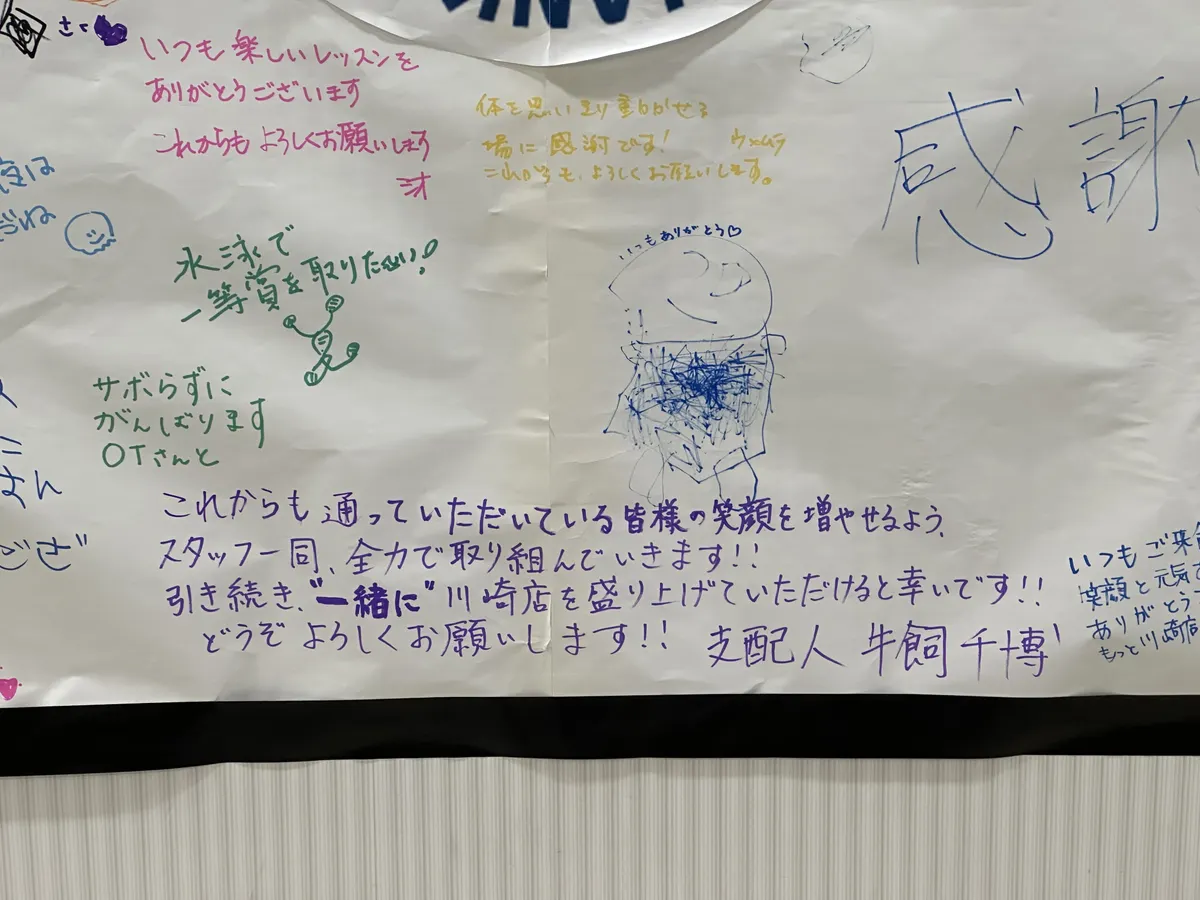 さく
いつも楽しいレッスンを
ありがとうございます
これからもよろしくお願いします
三才
体を思いきり動かせる
場に感謝です! ウメムラ
これからも、よろしくお願いします。
感謝
水泳で
一等賞を取りたい!
いつもありがとう♡
サボらずに
がんばります
OTさんと
これからも通っていただいている皆様の笑顔を増やせるよう、
スタッフ一同、全力で取り組んでいきます!!
引き続き、"一緒に"川崎店を盛り上げていただけると幸いです!!
どうぞよろしくお願いします!!
支配人 牛飼 千博
いつもご来店
笑顔と元気
ありがとう
もっと川崎店